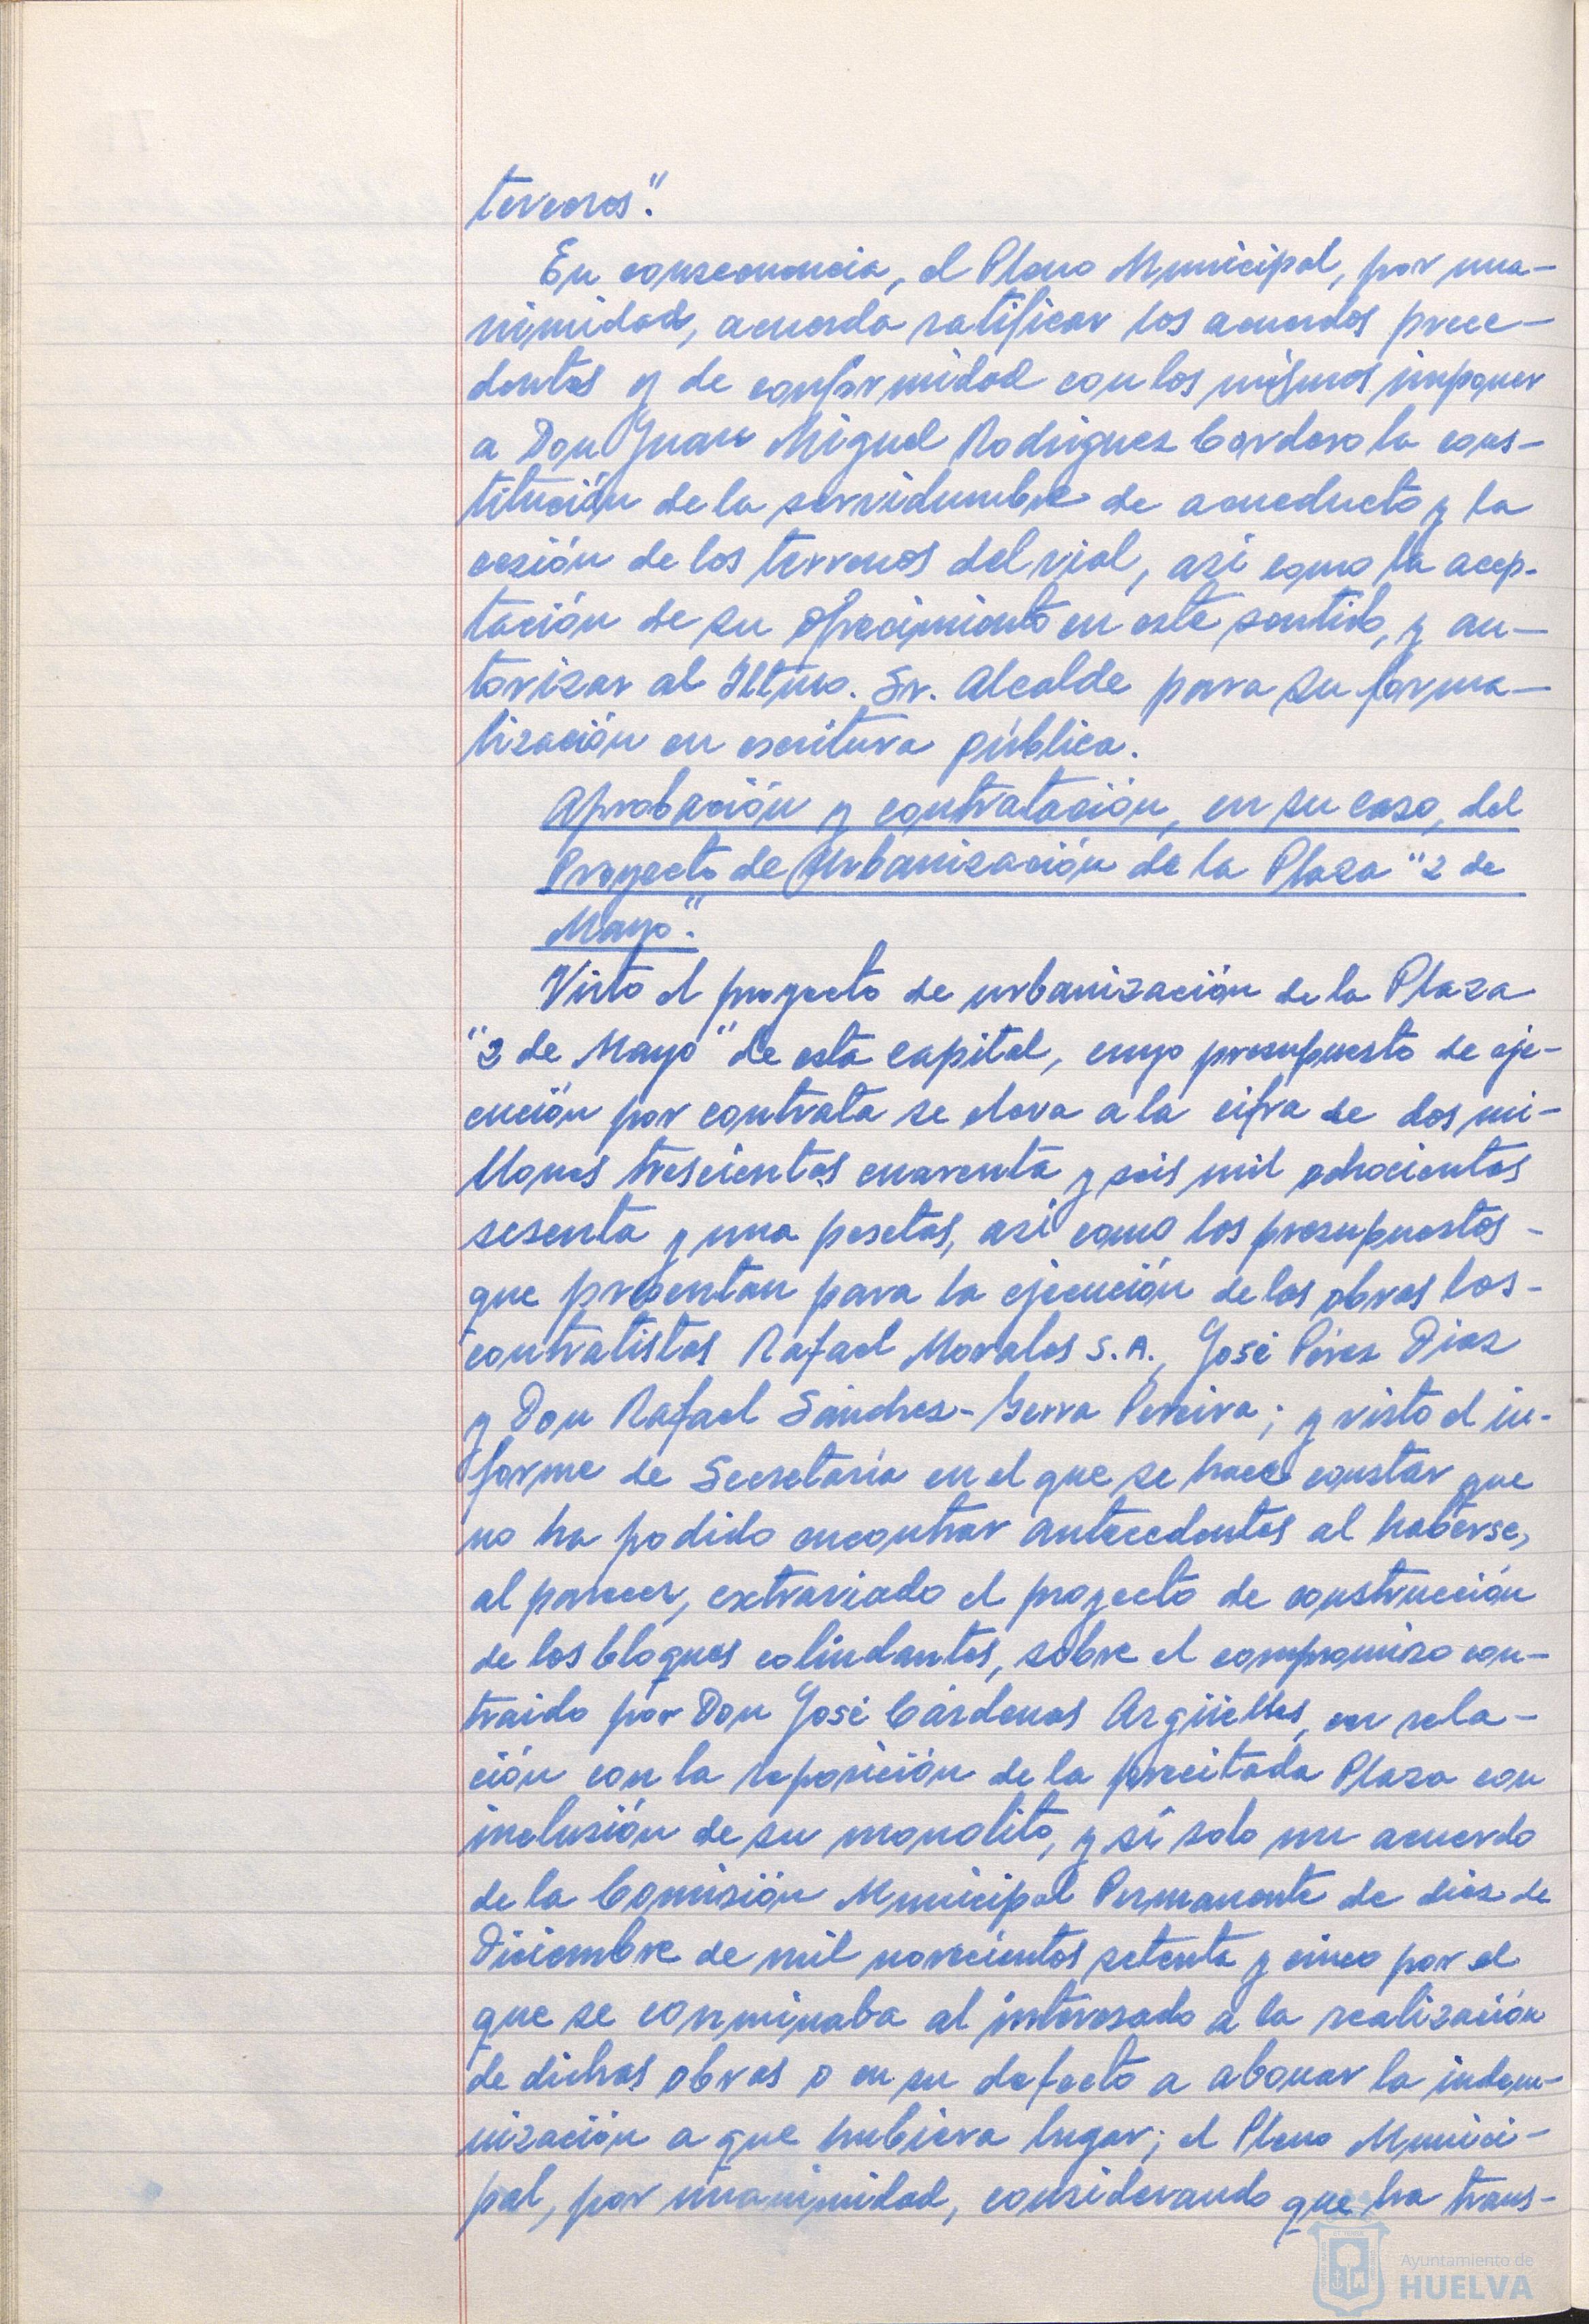 terceros".
En consecuencia, el Pleno Municipal, por una-
nimidad, acuerda ratificar los acuerdos prece-
dentes y de conformidad con los mismos imponer
a Don Juan Miguel Rodríguez Cordero la cons-
titución de la servidumbre de acueducto y la
cesión de los terrenos del vial, así como la acep-
tación de su ofrecimiento en este sentido, y au-
torizar al Iltmo. Sr. Alcalde para su forma-
lización en escritura pública.
Aprobación y contratación, en su caso, del
Proyecto de Urbanización de la Plaza "2 de
Mayo".
Visto el proyecto de urbanización de la Plaza
"2 de Mayo" de esta capital, cuyo presupuesto de eje-
cución por contrata se eleva a la cifra de dos mi-
llones trescientas cuarenta y seis mil ochocientas
sesenta y una pesetas, así como los presupuestos -
que presentan para la ejecución de las obras los -
contratistas Rafael Morales S.A., José Pérez Díaz
y Don Rafael Sánchez-Serra Pereira; y visto el in-
forme de Secretaría en el que se hace constar que
no ha podido encontrar antecedentes al haberse,
al parecer, extraviado el proyecto de construcción
de los bloques colindantes, sobre el compromiso con-
traido por Don José Cárdenas Argüelles, en rela-
ción con la reposición de la precitada Plaza con
inclusión de su monolito, y sí solo un acuerdo
de la Comisión Municipal Permanente de diez de
Diciembre de mil novecientos setenta y cinco por el
que se conminaba al interesado a la realización
de dichas obras o en su defecto a abonar la indem-
nización a que hubiera lugar; el Pleno Munici-
pal, por unanimidad, considerando que ha trans-
Ayuntamiento de
HUELVA